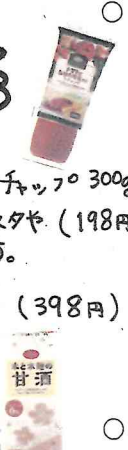 チャップ 300g
スタや (198円
う。
(398円)
米と米麹の
甘酒